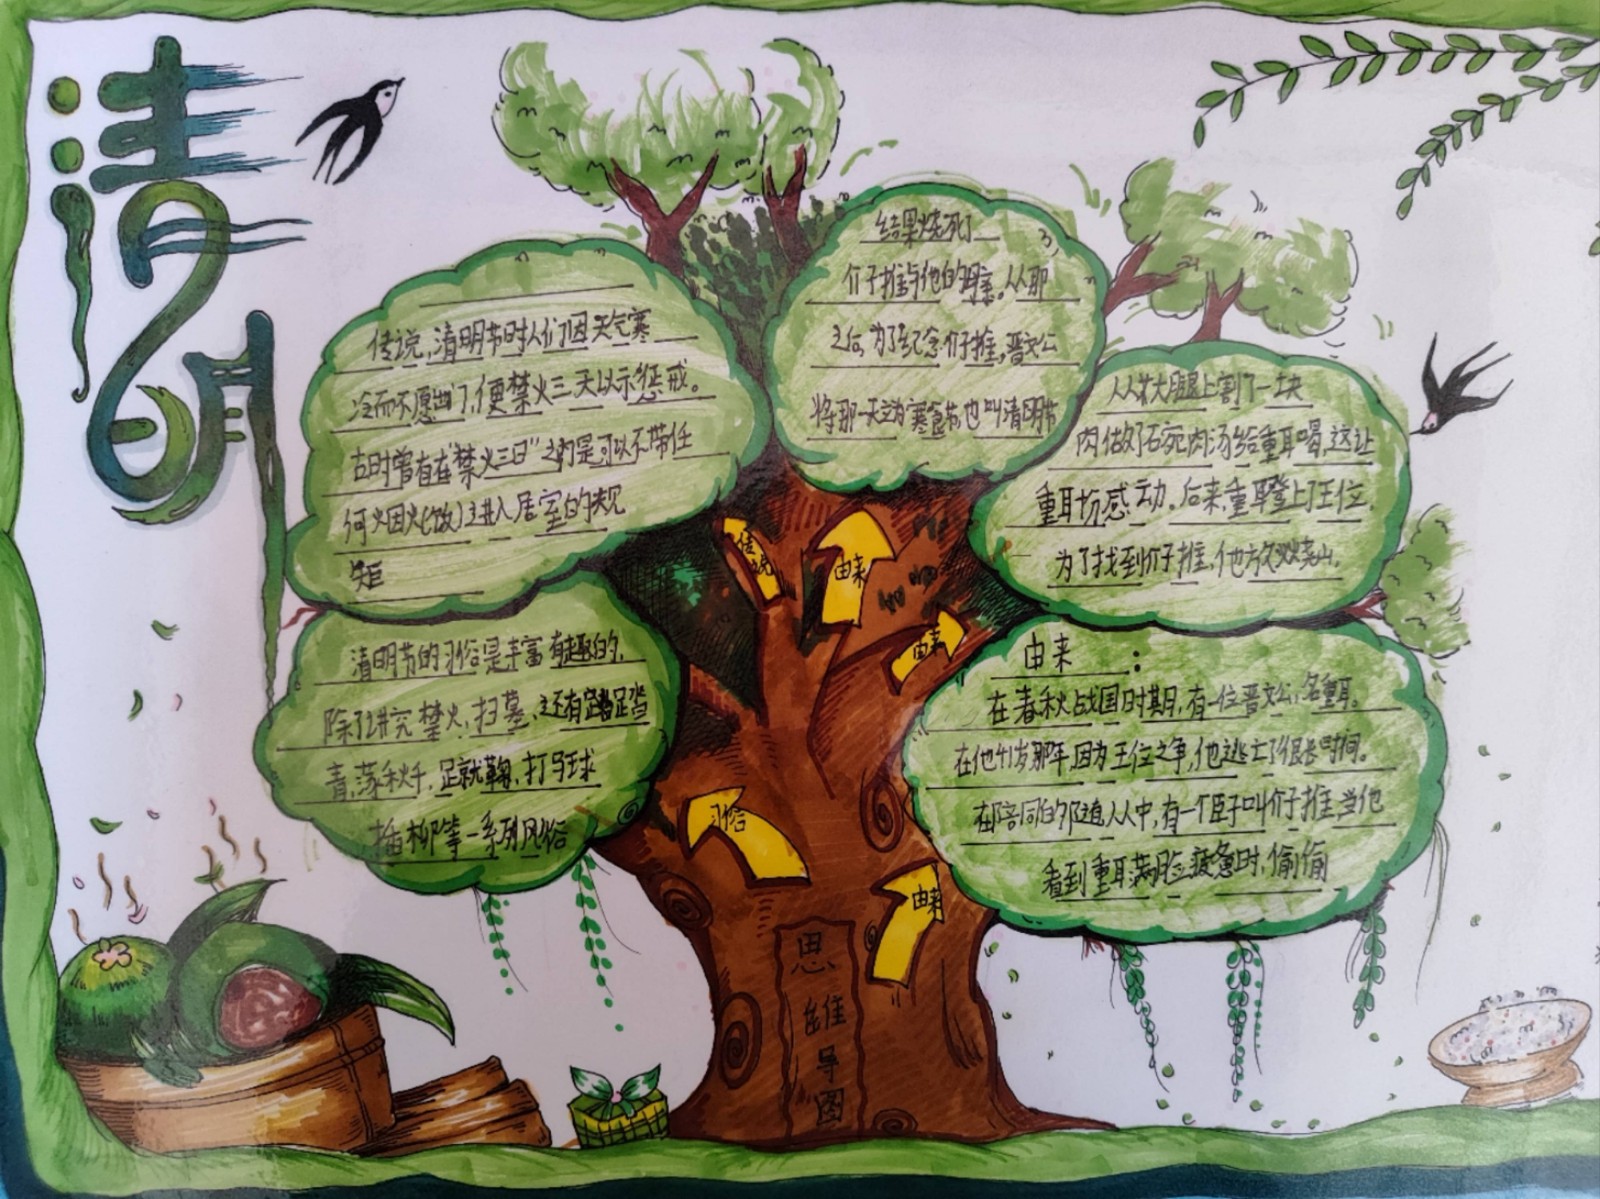 清明
传说，清明节时人们因天气寒
冷而不愿出门，便禁火三天以示惩戒。
古时曾有在“禁火三日”之内是可以不带任
何火因火(饭)进入居室的规
矩
清明节的习俗是丰富有趣的，
除了讲究禁火，扫墓，还有踏
青，荡秋千，足就鞠，打马球
插柳等一系列风俗
结果烧死了
介子推与他的母亲。从那
之后，为了纪念介子推，晋文公
将那一天定为寒食节，也叫清明节
大腿上割了一块
肉做了石宛肉汤给重耳喝，这让
重耳分感动。后来，重耳登上了王位，
为了找到介子推，他放火烧山，
由来：
在春秋战国时期，有一位晋文公，名重耳。
在他41岁那年，因为王位之争，他逃亡了很长时间。
在陪同的人中，有一个臣子叫介子推，当他
看到重耳满脸疲惫时，偷偷
传说
由来
由来
习俗
由来
思维导图